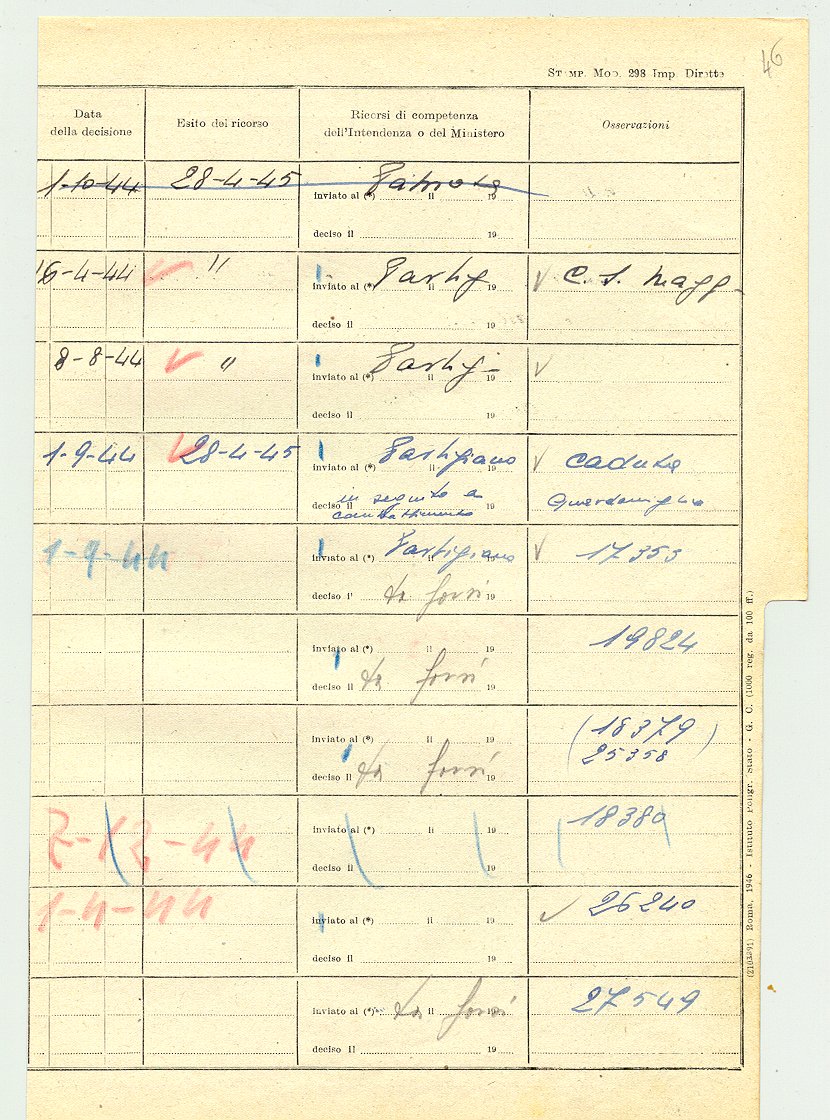 46
STAMP. MOD. 298 Imp. Dirette
Data della decisione
Esito del ricorso
Ricorsi di competenza dell'Intendenza o del Ministero
Osservazioni
1-10-44 28-4-45 Patriota
inviato al (*) il 19
deciso il 19
16-4-44 " Partig C. S. Magg-
inviato al (*) il 19
deciso il 19
8-8-44 " Partig-
inviato al (*) il 19
deciso il 19
1-9-44 28-4-45 Partigiano caduto
inviato al (*) il 19
in seguito a
deciso il 19
combattimento
1-9-44 Partigiano 17353
inviato al (*) il 19
deciso il 19
19824
inviato al (*) il 19
deciso il 19
(18379)
25358
inviato al (*) il 19
deciso il 19
7-12-44 18380
inviato al (*) il 19
deciso il 19
1-4-44 26240
inviato al (*) il 19
deciso il 19
27549
inviato al (*) il 19
deciso il 19
Roma, 1946 - Istituto Poligr. Stato - G. C. (1000 reg. da 100 ff.)